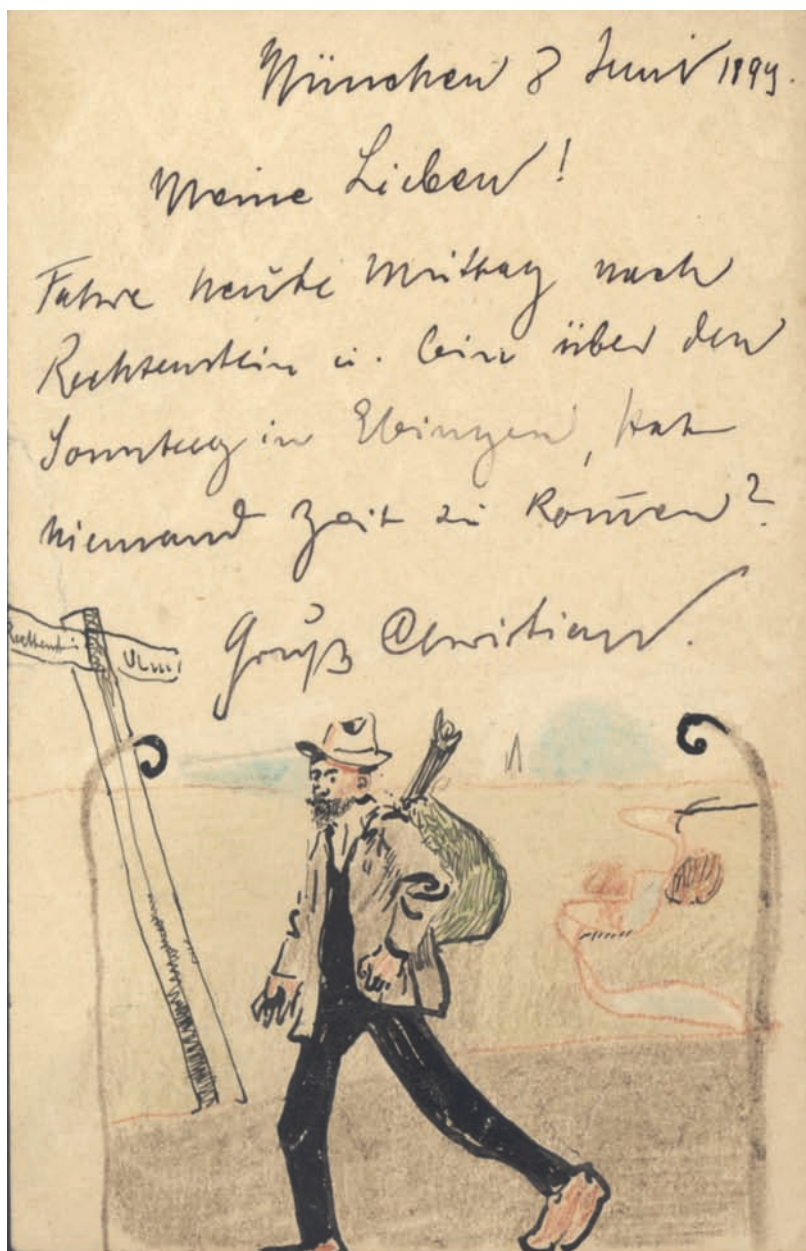 München 8 Juni 1899.
Meine Lieben!
Fahre heute Mittag nach
Rechtenstein u. bin über den
Sonntag in Ebingen, hat
niemand Zeit zu kom̄en?
Gruß Christian.
Ulm